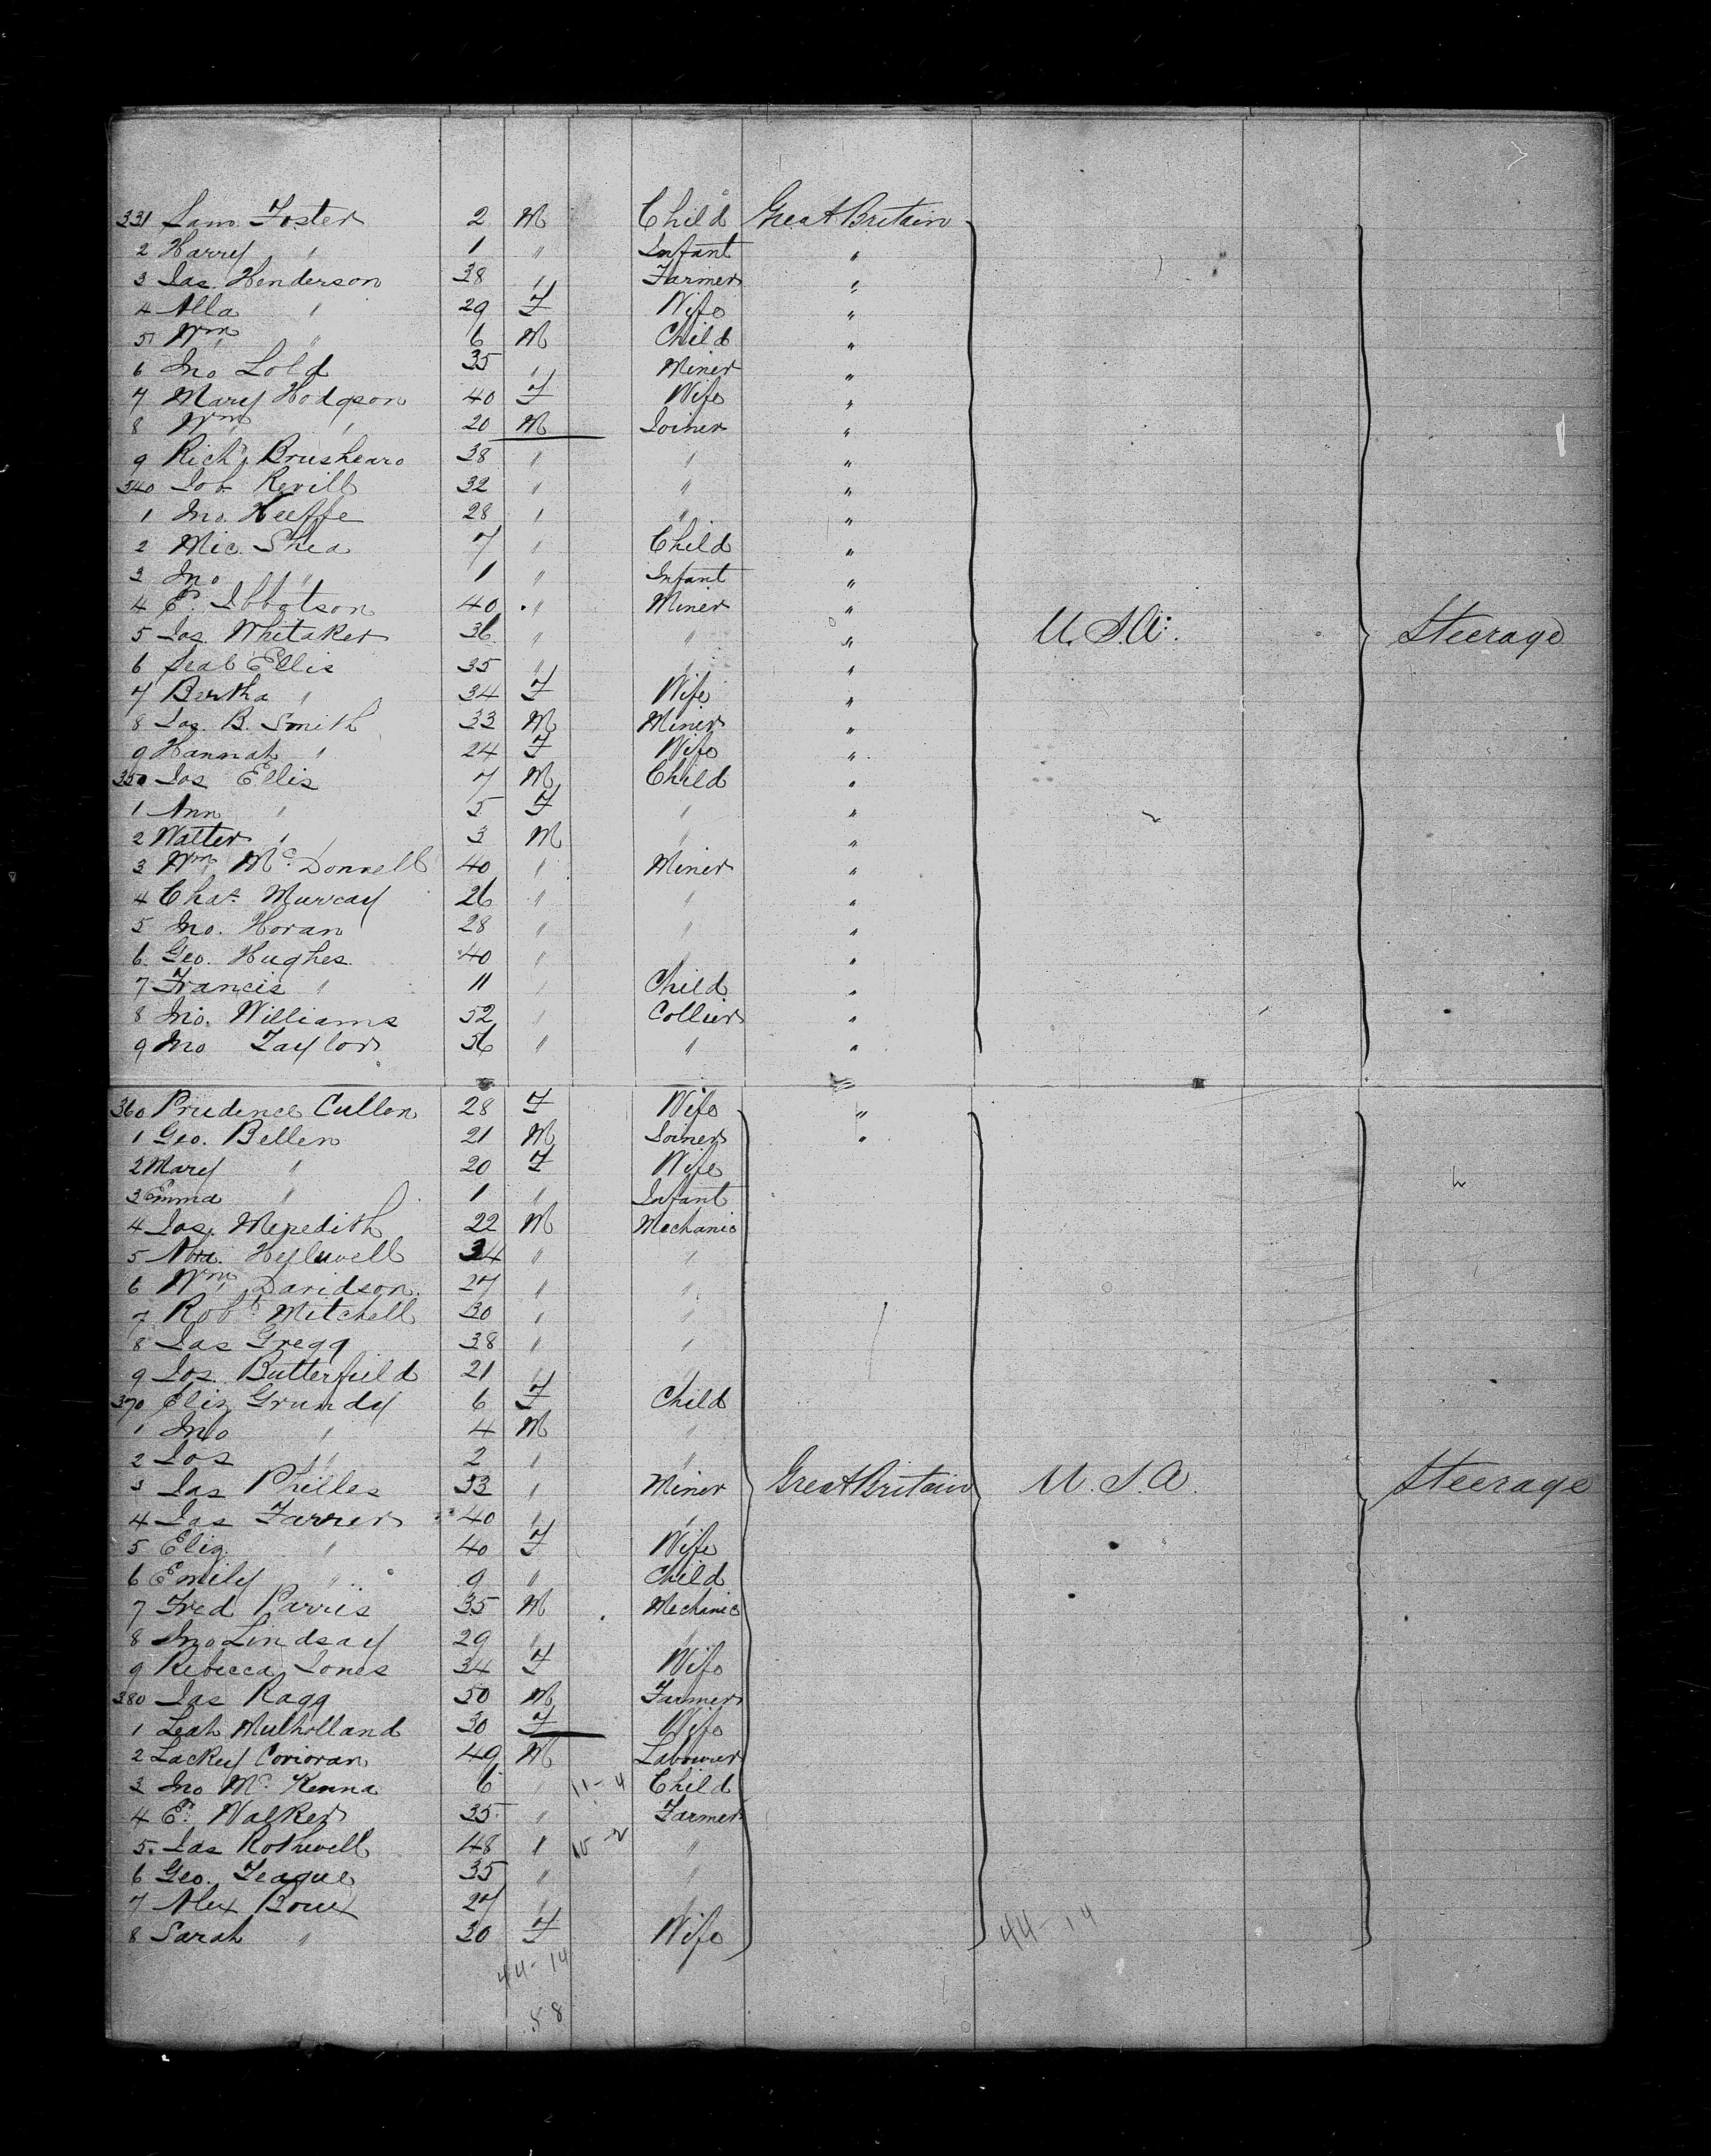 331 Sam Foster 2 M Child Great Britain
2 Harry " 1 " Infant "
3 Jas. Henderson 38 " Farmer "
4 Alla " 29 F Wife "
5 Wm " 6 M Child "
6 Jno Lold 35 " Miner "
7 Mary Hodgson 40 F Wife "
8 Wm " 20 M Joiner "
9 Richd Brushears 38 " " "
340 Job Revill 32 " " "
1 Jno. Keeffe 28 " " "
2 Mic. Shea 7 " Child "
3 Jno " 1 " Infant "
4 E. Ibbotson 40 " Miner "
5 Jas. Whitaker 36 " " " U.S.A. Steerage
6 Seal Ellis 35 " " "
7 Bertha " 34 F Wife "
8 Jas. B. Smith 33 M Miner "
9 Hannah " 24 F Wife "
350 Jos Ellis 7 M Child "
1 Ann " 5 F " "
2 Walter " 3 M " "
3 Wm McDonnell 40 " Miner "
4 Chas Murray 26 " " "
5 Jno. Horan 28 " " "
6 Geo. Hughes 40 " " "
7 Francis " 11 " Child "
8 Jno. Williams 52 " Collier "
9 Jno Taylor 56 " " "
360 Prudence Cullen 28 F Wife "
1 Geo. Bellen 21 M Joiner "
2 Mary " 20 F Wife
3 Emma " 1 " Infant
4 Jos. Meredith 22 M Mechanic
5 Hellewell 34 " "
6 Wm Davidson 27 " "
7 Robt Mitchell 30 " "
8 Jas Gregg 38 " "
9 Jos. Butterfield 21 " "
370 Eliz Grundy 6 F Child
1 Jno " 4 M "
2 Jos " 2 " "
3 Jas Philles 53 " Miner Great Britain U.S.A. Steerage
4 Jas Farrer 40 " "
5 Eliz. " 40 F Wife
6 Emily " 9 " Child
7 Fred Parris 35 M Mechanic
8 Jno Lindsay 29 " "
9 Rebecca Jones 34 F Wife
380 Jas Ragg 50 M Farmer
1 Leah Mulholland 30 F Wife
2 Lackey Corioran 49 M Labourer
3 Jno McKenna 6 " 11-4 Child
4 E. Walker 35 " Farmer
5 Jas Rothwell 48 " 10-2 "
6 Geo. Teague 35 " "
7 Alex Bowe 27 " "
8 Sarah " 30 F Wife 44-14
44-14
58